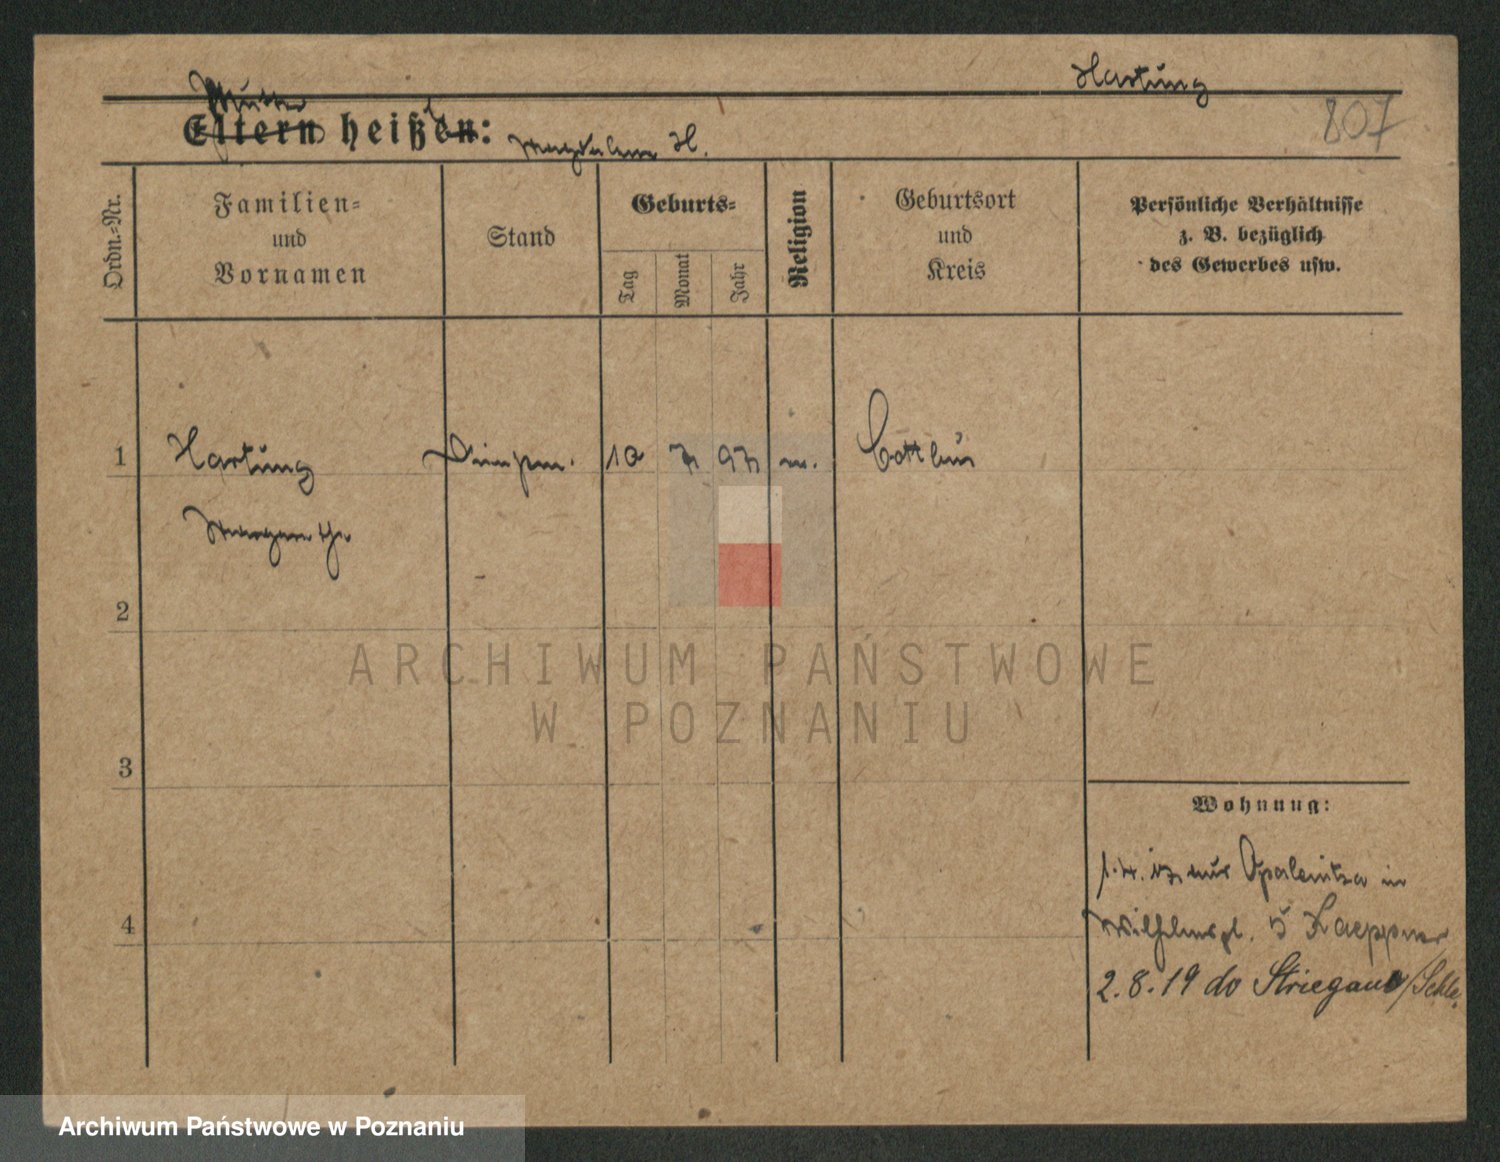 Hartung
807
Mutter
Eltern heißen: Magdalena H.
Ordn.-Nr.
Familien- und Vornamen
Stand
Geburts-
Tag
Monat
Jahr
Religion
Geburtsort und Kreis
Persönliche Verhältnisse
z. B. bezüglich
des Gewerbes usw.
1 Hartung 10 7 97 Cottbus
Margarethe
2
3
4
Wohnung:
aus Opalenitza in
Wilhelmspl. 5 Kaeppner
2.8.19 do Striegau/Schle.
ARCHIWUM PAŃSTWOWE
W POZNANIU
Archiwum Państwowe w Poznaniu